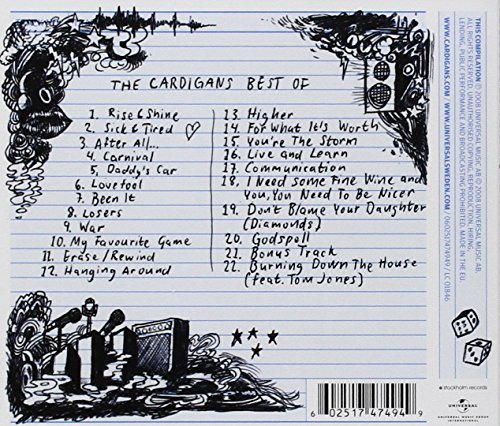 THE CARDIGANS BEST OF
1. Rise & Shine
2. Sick & Tired
3. After All...
4. Carnival
5. Daddy's Car
6. Lovefool
7. Been It
8. Losers
9. War
10. My Favourite Game
11. Erase/Rewind
12. Hanging Around
13. Higher
14. For What It's Worth
15. You're The Storm
16. Live and Learn
17. Communication
18. I Need Some Fine Wine and
You, You Need To Be Nicer
19. Don't Blame Your Daughter
(Diamonds)
20. Godspell
21. Bonus Track
22. Burning Down The House
(feat. Tom Jones)
THIS COMPILATION ℗ 2008 UNIVERSAL MUSIC AB. © 2008 UNIVERSAL MUSIC AB.
ALL RIGHTS RESERVED. UNAUTHORISED COPYING, REPRODUCTION, HIRING,
LENDING, PUBLIC PERFORMANCE AND BROADCASTING PROHIBITED. MADE IN THE EU.
WWW.CARDIGANS.COM / WWW.UNIVERSALSWEDEN.COM / 0602517474949 / LC 01846
6 02517 47494 9
stockholm records
UNIVERSAL
UNIVERSAL MUSIC GROUP
INTERNATIONAL